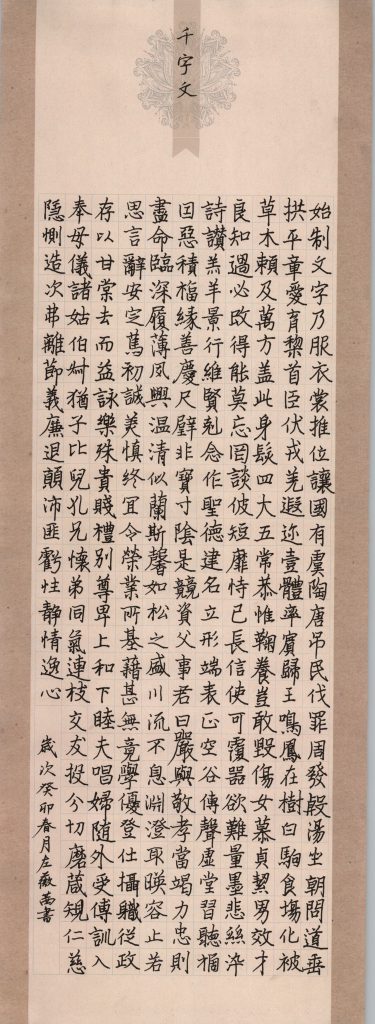 千字文
始制文字乃服衣裳推位讓國有虞陶唐吊民伐罪周發殷湯坐朝問道垂
拱平章愛育黎首臣伏戎羌遐迩壹體率賓歸王鳴鳳在樹白駒食場化被
草木賴及萬方盖此身髮四大五常恭惟鞠養豈敢毀傷女慕貞絜男效才
良知過必改得能莫忘罔談彼短靡恃己長信使可覆器欲難量墨悲絲染
詩讚羔羊景行維賢剋念作聖德建名立形端表正空谷傳聲虛堂習聽禍
因惡積福緣善慶尺璧非寶寸陰是競資父事君曰嚴與敬孝當竭力忠則
盡命臨深履薄夙興温清似蘭斯馨如松之盛川流不息淵澄取暎容止若
思言辭安定篤初誠美慎終宜令榮業所基藉甚無竟學優登仕攝職從政
存以甘棠去而益詠樂殊貴賤禮別尊卑上和下睦夫唱婦随外受傅訓入
奉母儀諸姑伯叔猶子比兒孔兄懷弟同氣連枝交友投分切磨箴規仁慈
隱惻造次弗離節義廉退顛沛匪虧性静情逸心
歲次癸卯春月左薇萬書